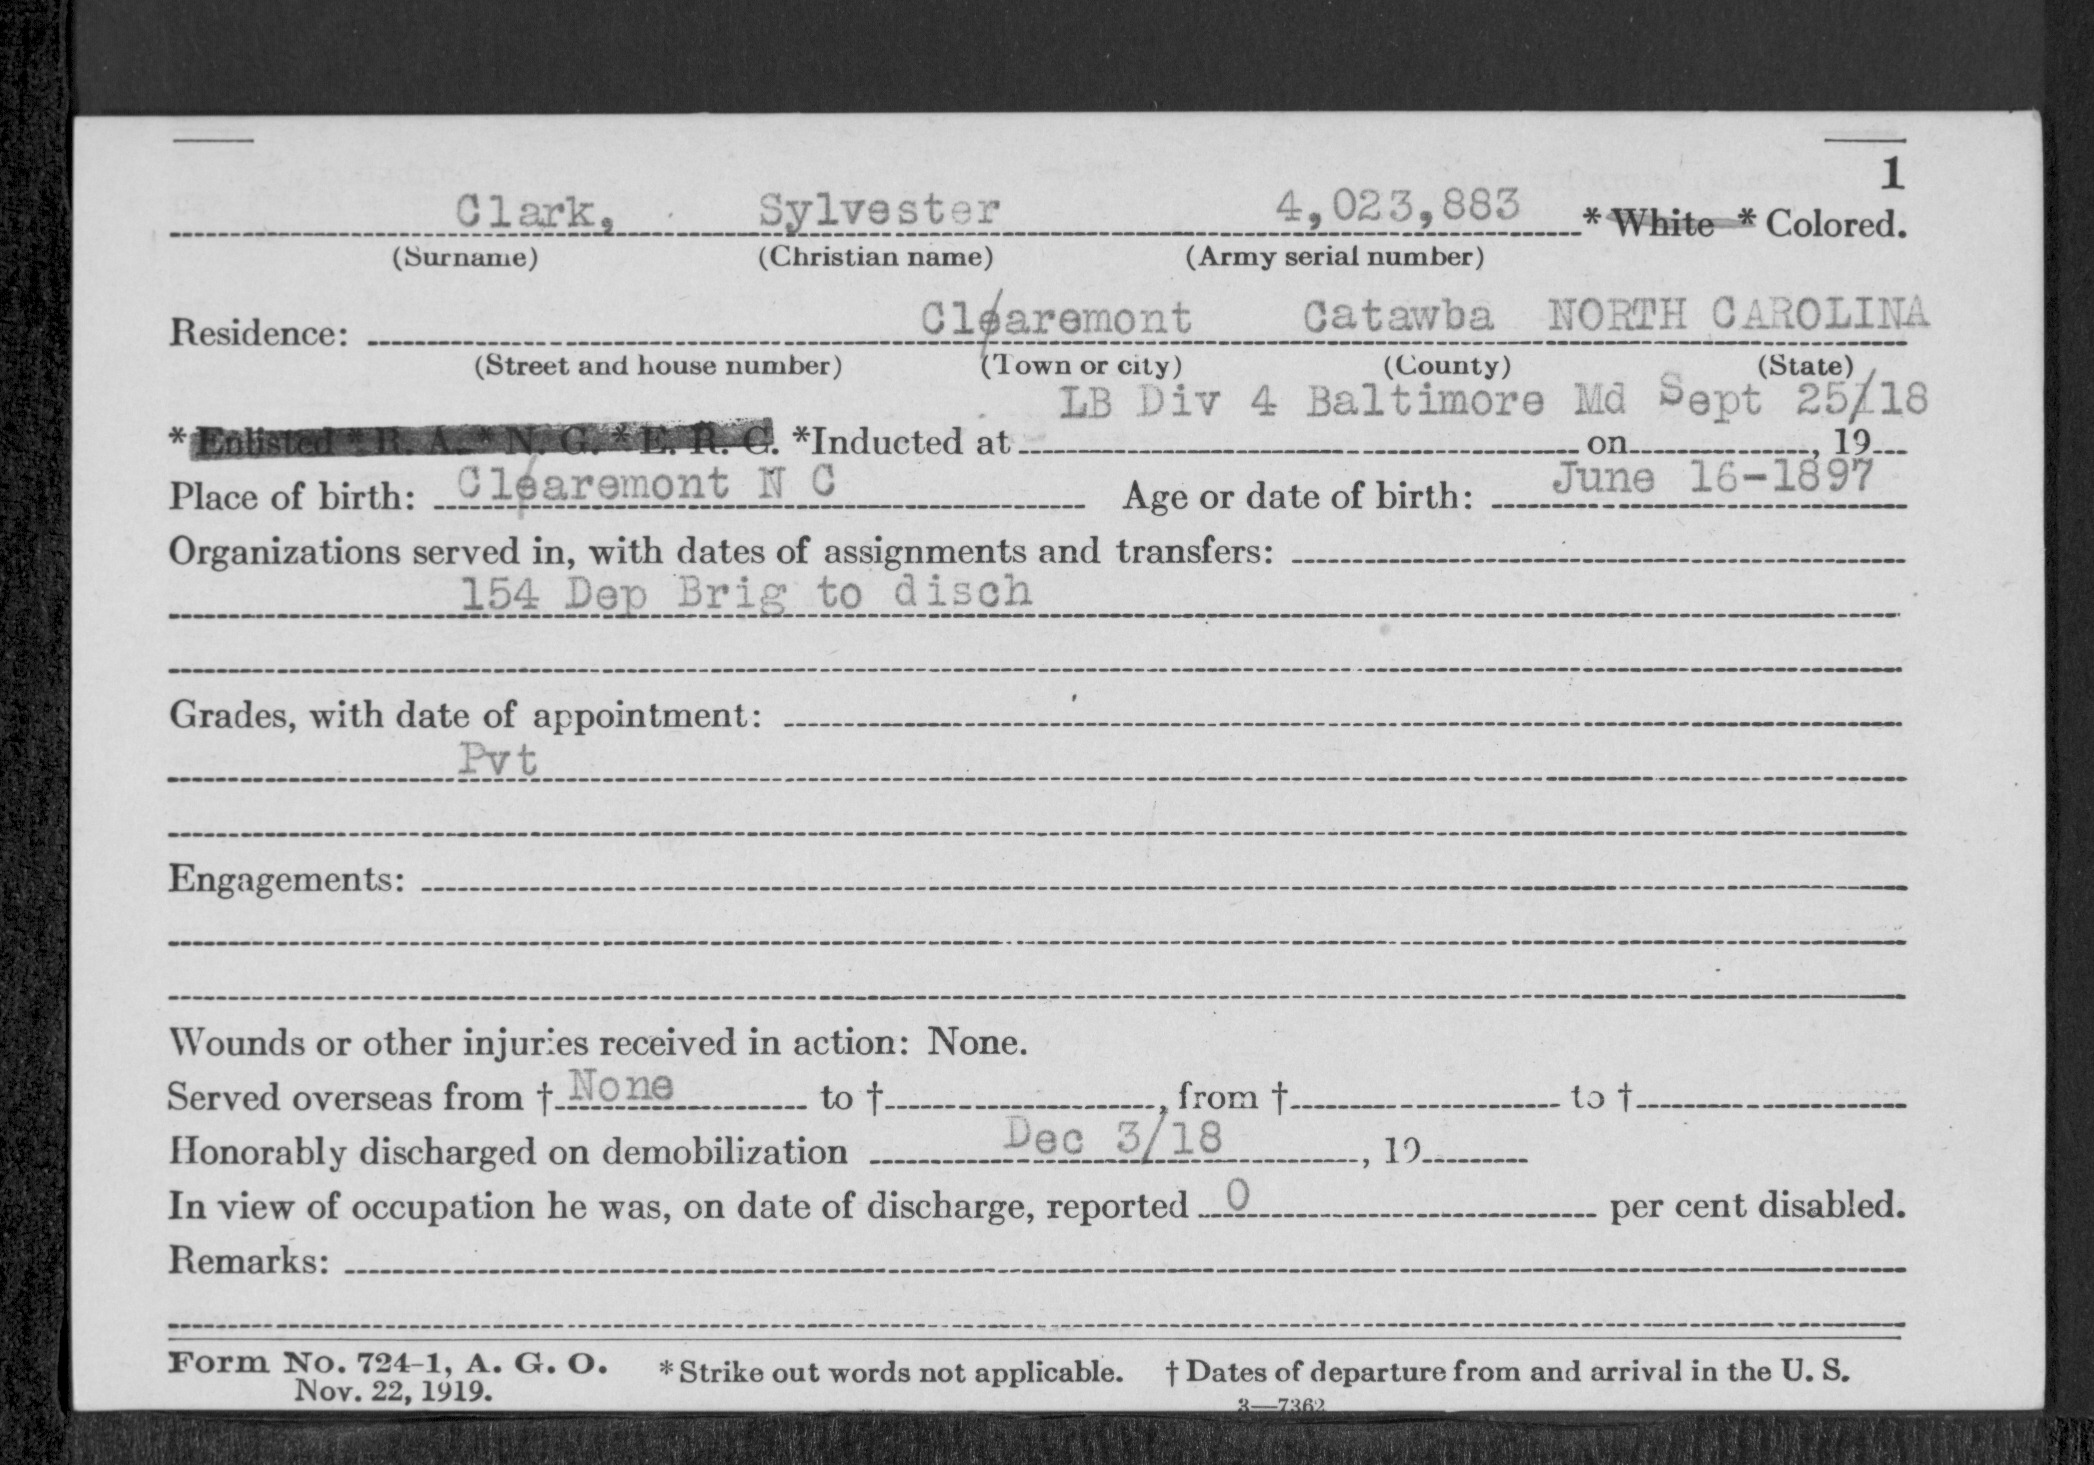 1
Clark, Sylvester 4,023,883 * White * Colored.
(Surname) (Christian name) (Army serial number)
Residence: Clearemont Catawba NORTH CAROLINA
(Street and house number) (Town or city) (County) (State)
LB Div 4 Baltimore Md Sept 25/18
* Enlisted * R. A. * N. G. * E. R. C. *Inducted at on , 19
Place of birth: Clearemont N C Age or date of birth: June 16-1897
Organizations served in, with dates of assignments and transfers:
154 Dep Brig to disch
Grades, with date of appointment:
Pvt
Engagements:
Wounds or other injuries received in action: None.
Served overseas from † None to † , from † to †
Honorably discharged on demobilization Dec 3/18 , 19
In view of occupation he was, on date of discharge, reported 0 per cent disabled.
Remarks:
Form No. 724-1, A. G. O. * Strike out words not applicable. † Dates of departure from and arrival in the U. S.
Nov. 22, 1919.
3—7362